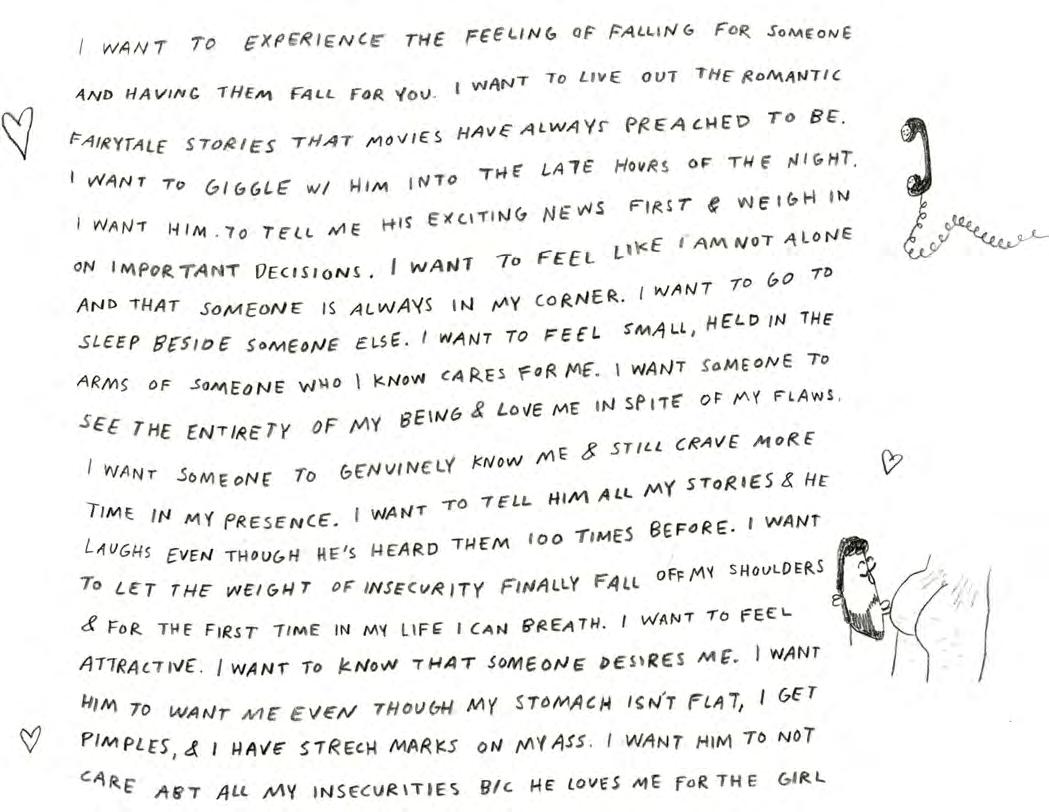 I WANT TO EXPERIENCE THE FEELING OF FALLING FOR SOMEONE
AND HAVING THEM FALL FOR YOU. I WANT TO LIVE OUT THE ROMANTIC
FAIRYTALE STORIES THAT MOVIES HAVE ALWAYS PREACHED TO BE.
I WANT TO GIGGLE W/ HIM INTO THE LATE HOURS OF THE NIGHT.
I WANT HIM. TO TELL ME HIS EXCITING NEWS FIRST & WEIGH IN
ON IMPORTANT DECISIONS. I WANT TO FEEL LIKE I AM NOT ALONE
AND THAT SOMEONE IS ALWAYS IN MY CORNER. I WANT TO GO TO
SLEEP BESIDE SOMEONE ELSE. I WANT TO FEEL SMALL, HELD IN THE
ARMS OF SOMEONE WHO I KNOW CARES FOR ME. I WANT SOMEONE TO
SEE THE ENTIRETY OF MY BEING & LOVE ME IN SPITE OF MY FLAWS.
I WANT SOMEONE TO GENUINELY KNOW ME & STILL CRAVE MORE
TIME IN MY PRESENCE. I WANT TO TELL HIM ALL MY STORIES & HE
LAUGHS EVEN THOUGH HE'S HEARD THEM 100 TIMES BEFORE. I WANT
TO LET THE WEIGHT OF INSECURITY FINALLY FALL OFF MY SHOULDERS
& FOR THE FIRST TIME IN MY LIFE I CAN BREATH. I WANT TO FEEL
ATTRACTIVE. I WANT TO KNOW THAT SOMEONE DESIRES ME. I WANT
HIM TO WANT ME EVEN THOUGH MY STOMACH ISN'T FLAT, I GET
PIMPLES, & I HAVE STRECH MARKS ON MY ASS. I WANT HIM TO NOT
CARE ABT ALL MY INSECURITIES B/C HE LOVES ME FOR THE GIRL